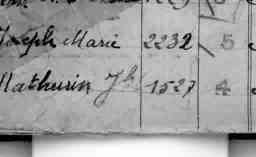 Joseph Marie 2232 5
Mathurin Jh 1527 4